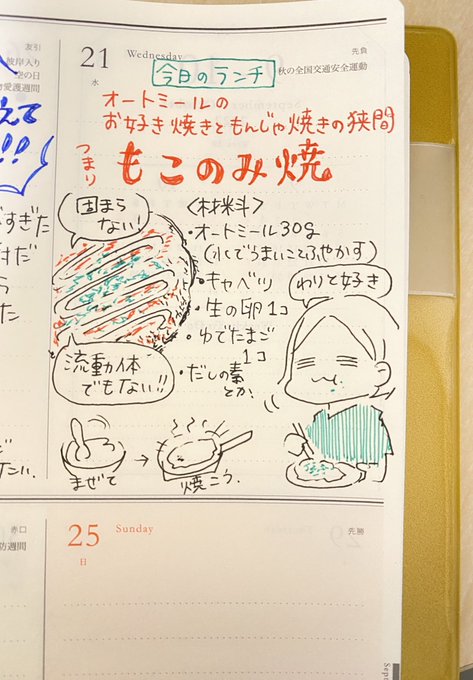 友引
彼岸入り
空の日
物愛護週間
えて
!!!
21
Wednesday
水
先負
秋の全国交通安全運動
今日のランチ
オートミールの
お好き焼きともんじゃ焼きの狭間
つまり
もこのみ焼
固まら
ない!
流動体
でもない!!
<材料>
・オートミール30g
(水でうまいことふやかす)
・キャベツ
・生の卵1コ
・ゆでたまご
1コ
・だしの素
とか
わりと好き
まぜて
→
焼こう.
赤口
防週間
25
Sunday
日
先勝